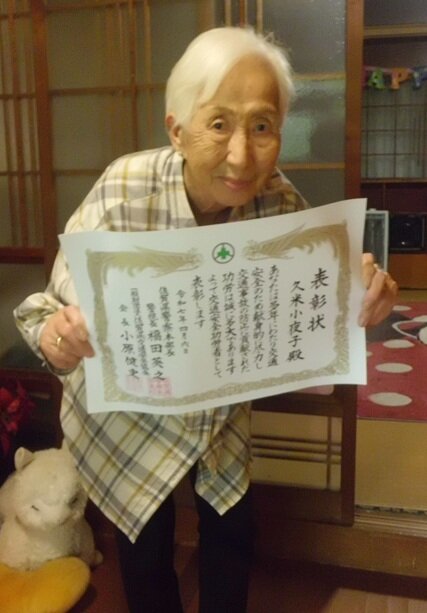 表彰状
久米小夜子殿
あなたは多年にわたり交通
安全のため献身的に尽力し
交通事故の防止に貢献された
功労は誠に多大であります
よって交通安全功労者として
表彰します
令和七年四月六日
佐賀県警察本部長
警視長 福田英之
一般財団法人佐賀県交通安全協会
会長 小原健史
APPY